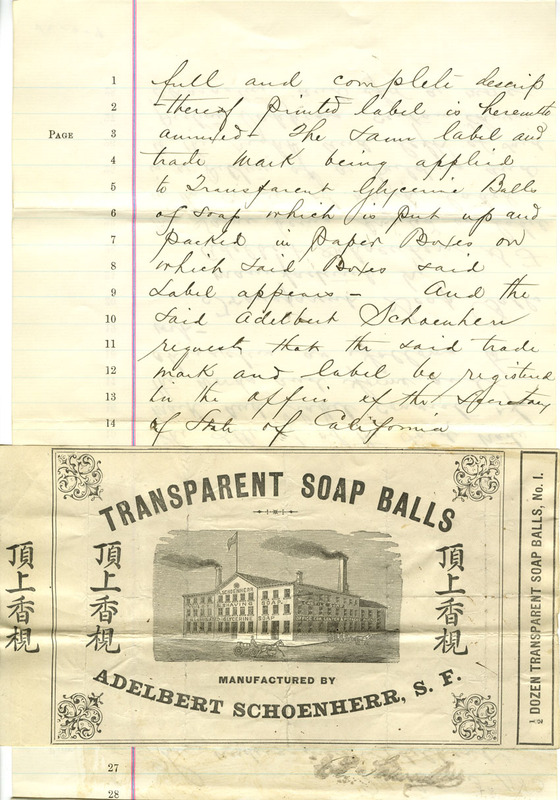 1 full and complete descrip
2 -thereof printed label is hereunto
PAGE 3 annexed - The same label and
4 trade mark being applied
5 to Transparent Glycerine Balls
6 of soap which is put up and
7 packed in Paper Boxes on
8 which said Boxes said
9 Label appears - And the
10 said Adelbert Schoenherr
11 request that the said trade
12 mark and label be registered
13 in the office of the Secretary
14 of State of California
TRANSPARENT SOAP BALLS
頂上香視
頂上香視
頂上香視
SCHOENHERR
SHAVING SOAP
GLYCERINE SOAP
MANUFACTURED BY
ADELBERT SCHOENHERR, S. F.
½ DOZEN TRANSPARENT SOAP BALLS, No. 1.
27
28